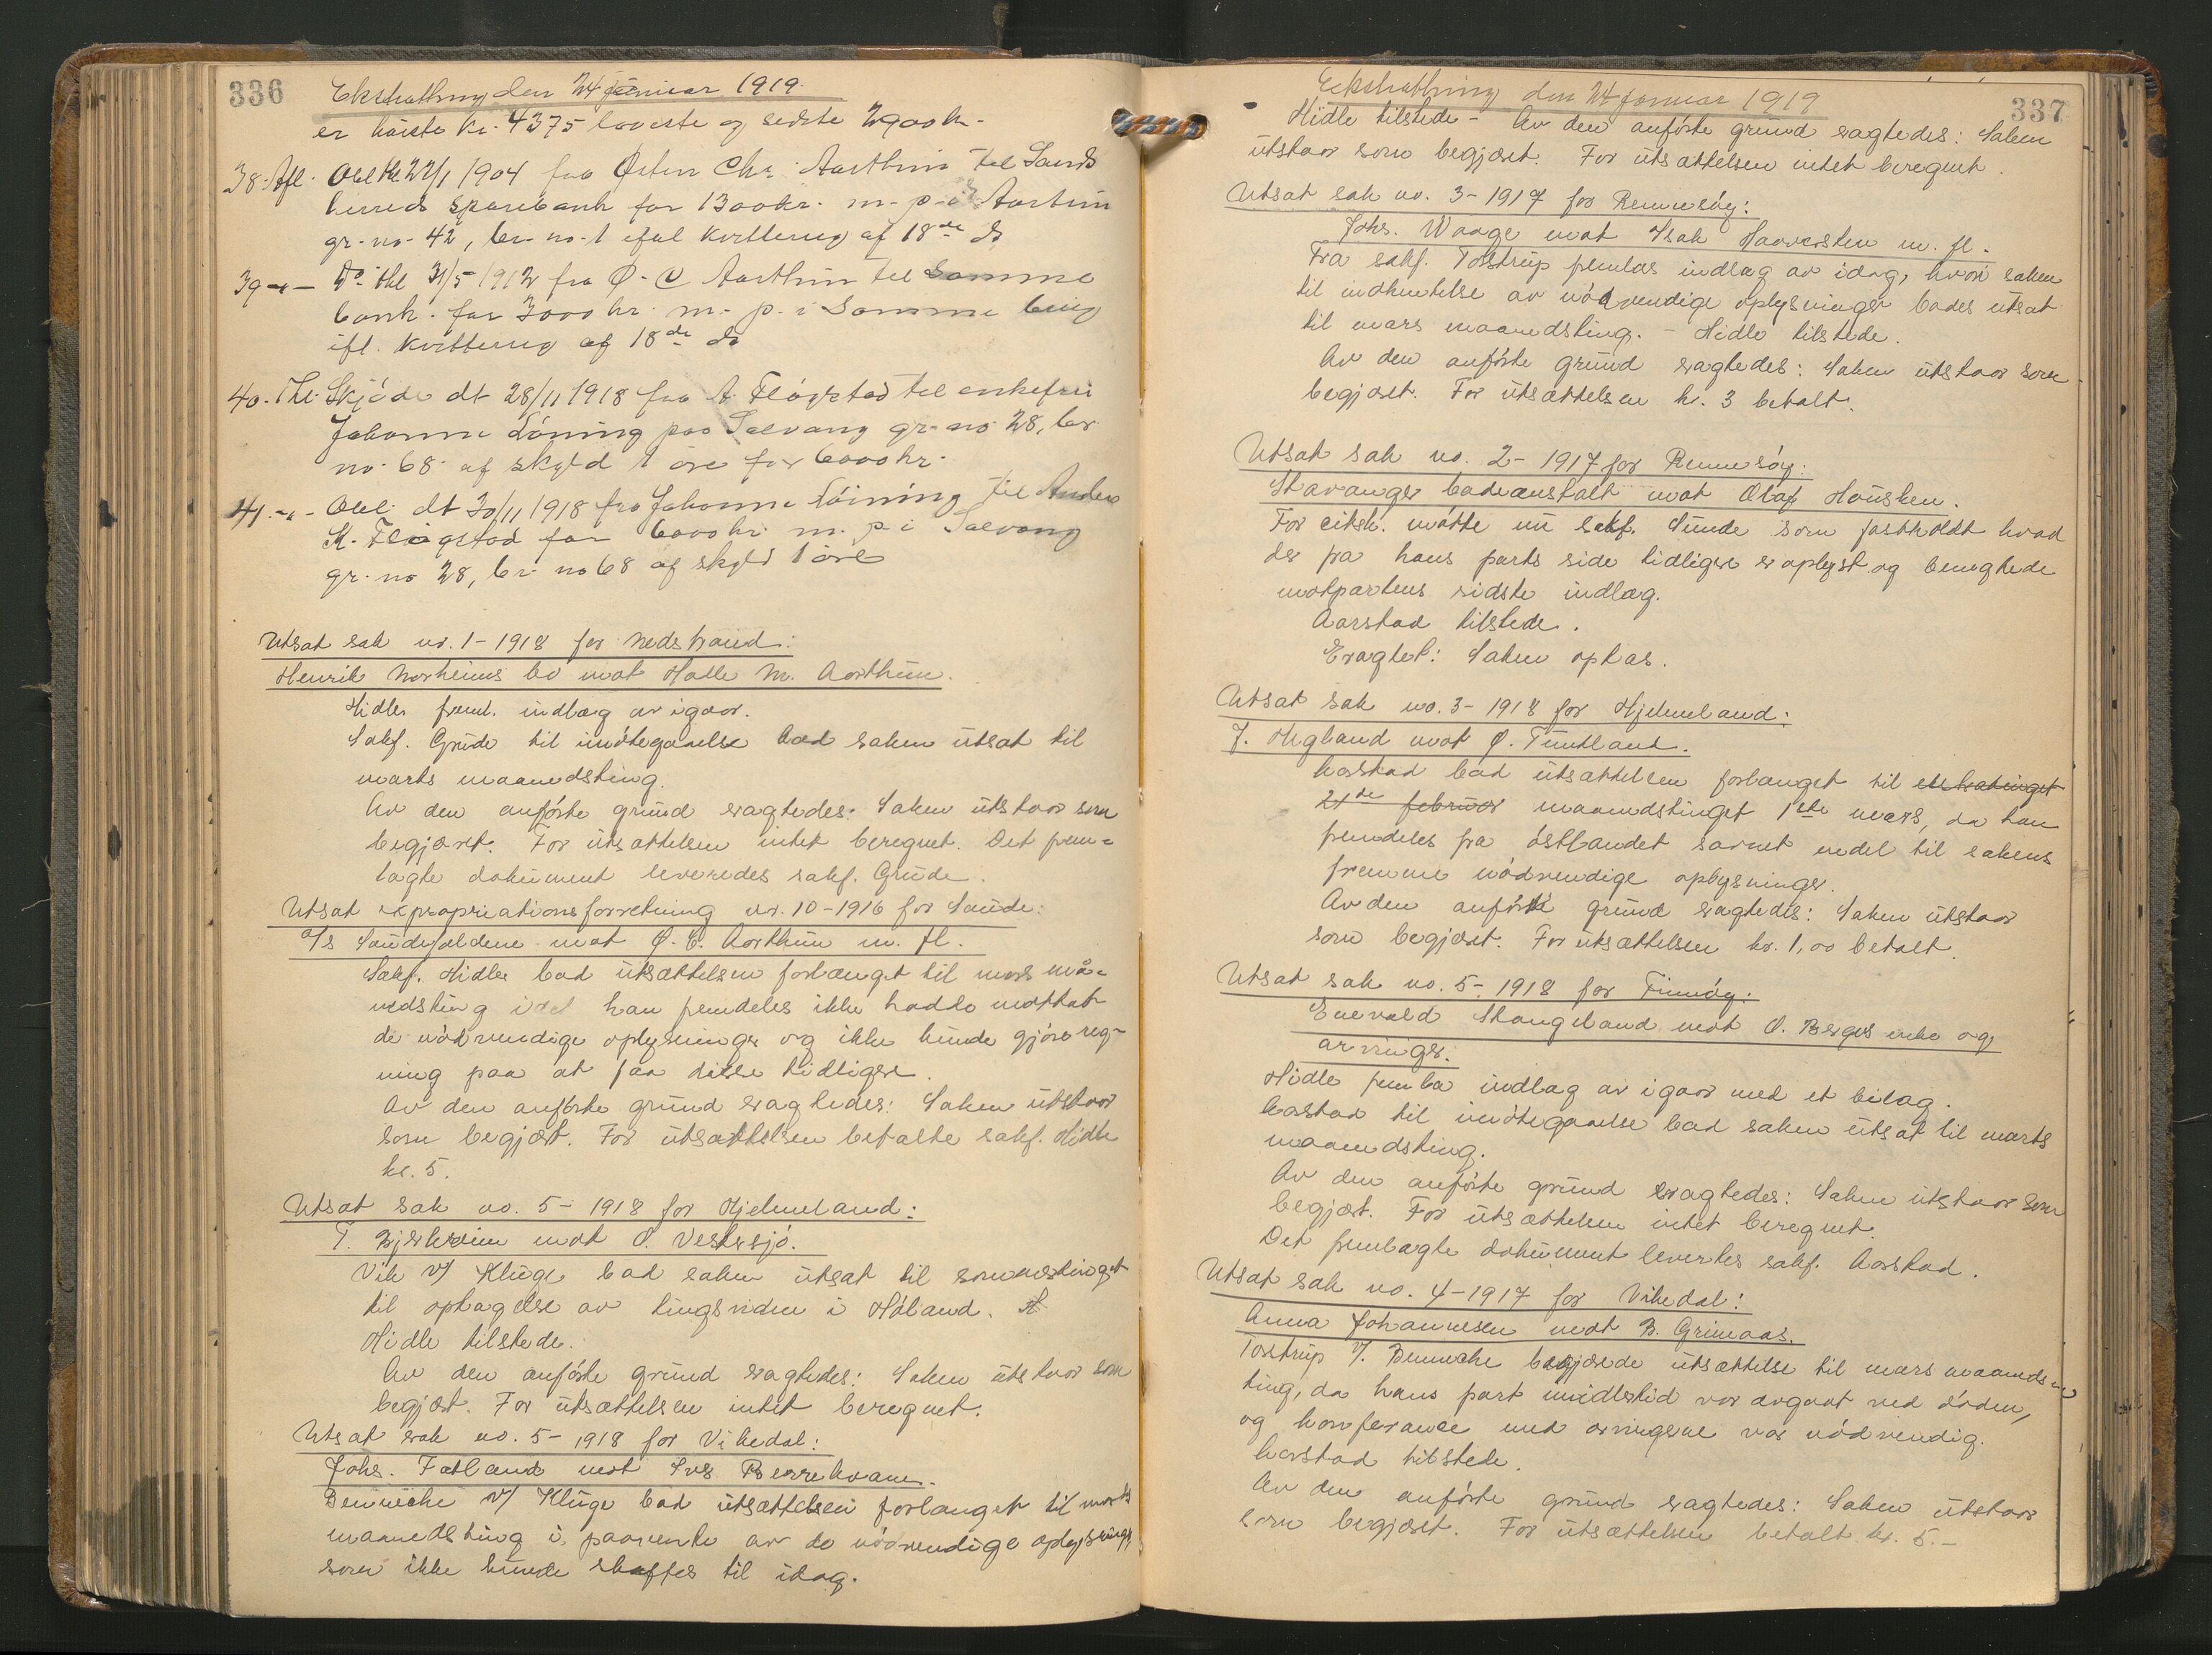 336
Ekstrathing den 24 januar 1919.
er höiste kr. 4375 laveste og sidste 2900 kr.
38. Afl. Obl thl 22/1 1904 fra Østen Chr. Aarthun til Sands
herreds sparebank for 1300 kr. m. p. i Aarthun
gr. no. 42, br. no. 1 iføl kvittering af 18de ds
39 -"- Do. thl 31/5 1912 fra Ø. C Aarthun til Samme
bank. for 3000 kr. m. p. i Samme brug
ifl. kvittering af 18de ds
40. Thl. Skjöde dt 28/11 1918 fra A. Flögstad til enkefru
Johanne Löning paa Solvang gr. no 28, br
no. 68 af skyld 1 öre for 6000 kr.
41. -"- Obl. dt 30/11 1918 fra Johanne Löining til Anders
K. Flögstad for 6000 kr. m. p. i Solvang
gr. no 28, br. no 68 af skyld 1 öre
Utsat sak nr. 1 - 1918 for Nedstrand:
Henrik Norheims bo mot Halle M. Aarthun.
Hidle freml. indlæg av igaar.
Sakf. Grude til imötegaaelse bad saken utsat til
marts maanedsting.
Av den anförte grund eragtedes: Saken utstaar som
begjært. For utsættelsen intet beregnet. Det frem=
lagte dokument leveredes sakf. Grude.
Utsat expropriationsforretning nr. 10 - 1916 for Saude:
A/s Saudefaldene mot Ø. C. Aarthun m. fl.
Sakf. Hidle bad utsættelsen forlænget til mars må=
nedsting idet han fremdeles ikke hadde mottat
de nödvendige oplysninger og ikke kunde gjöre reg=
ning paa at faa disse tidligere.
Av den anförte grund eragtedes: Saken utstaar
som begjært. For utsættelsen betalte sakf. Hidle
kr. 5.
Utsat sak no. 5 - 1918 for Hjelmeland:
T. Bjerkreim mot O. Vestersjö.
Vik v/ Kluge bad saken utsat til sommertinget
til optagelse av tingsvidne i Höland.
Hidle tilstede.
Av den anförte grund eragtedes: Saken utstaar som
begjært. For utsættelsen intet beregnet.
Utsat sak no. 5 - 1918 for Vikedal:
Johs. Fatland mot Ivs Berrekvam.
Benneche v/ Kluge bad utsættelsen forlænget til marts
maanedsting i paavente av de nödvendige oplysninger
som ikke kunde skaffes til idag.
337
Ekstrathing den 24 januar 1919
Hidle tilstede - Av den anförte grund eragtedes: Saken
utstaar som begjært. For utsættelsen intet beregnet.
Utsat sak no. 3 - 1917 for Rennesöy:
Johs. Waage mot Isak Haavarsten m. fl.
Fra sakf. Tostrup fremlas indlæg av idag, hvori saken
til indhentelse av nödvendige oplysninger bades utsat
til mars maanedsting. - Hidle tilstede.
Av den anförte grund eragtedes: Saken utstaar som
begjært. For utsættelsen kr. 3 betalt.
Utsat sak no. 2 - 1917 for Rennesöy:
Stavanger badeanstalt mot Olaf Hausken.
For citsk. mötte nu sakf. Sunde som fastholdt hvad
der fra hans parts side tidligere er oplyst og benegtede
motpartens sidste indlæg.
Aarstad tilstede.
Eragtet: Saken optas.
Utsat sak no. 3 - 1918 for Hjelmeland:
J. Hegland mot Ø. Tuntland.
Aarstad bad utsættelsen forlænget til ekstratinget
21de februar maanedstinget 1ste mars, da han
fremdeles fra östlandet savnet endel til sakens
fremme nödvendige oplysninger.
Av den anförte grund eragtedes: Saken utstaar
som begjært. For utsættelsen kr. 1,00 betalt.
Utsat sak no. 5 - 1918 for Finnöy:
Enevald Stangeland mot O. Berges enke og
arvinger.
Hidle fremla indlæg av igaar med et bilag.
Aarstad til imötegaaelse bad saken utsat til marts
maanedsting.
Av den anförte grund eragtedes: Saken utstaar som
begjært. For utsættelsen intet beregnet.
Det fremlagte dokument leveredes sakf. Aarstad.
Utsat sak no. 4 - 1917 for Vikedal:
Anna Johannesen mot B. Grimaas.
Tostrup v/. Benneche begjærede utsættelse til mars maaneds=
ting, da hans part imidlertid var avgaat ved döden,
og konferance med arvingerne var nödvendig.
Aarstad tilstede.
Av den anförte grund eragtedes: Saken utstaar
som begjæret. For utsættelsen betalt kr. 5.-